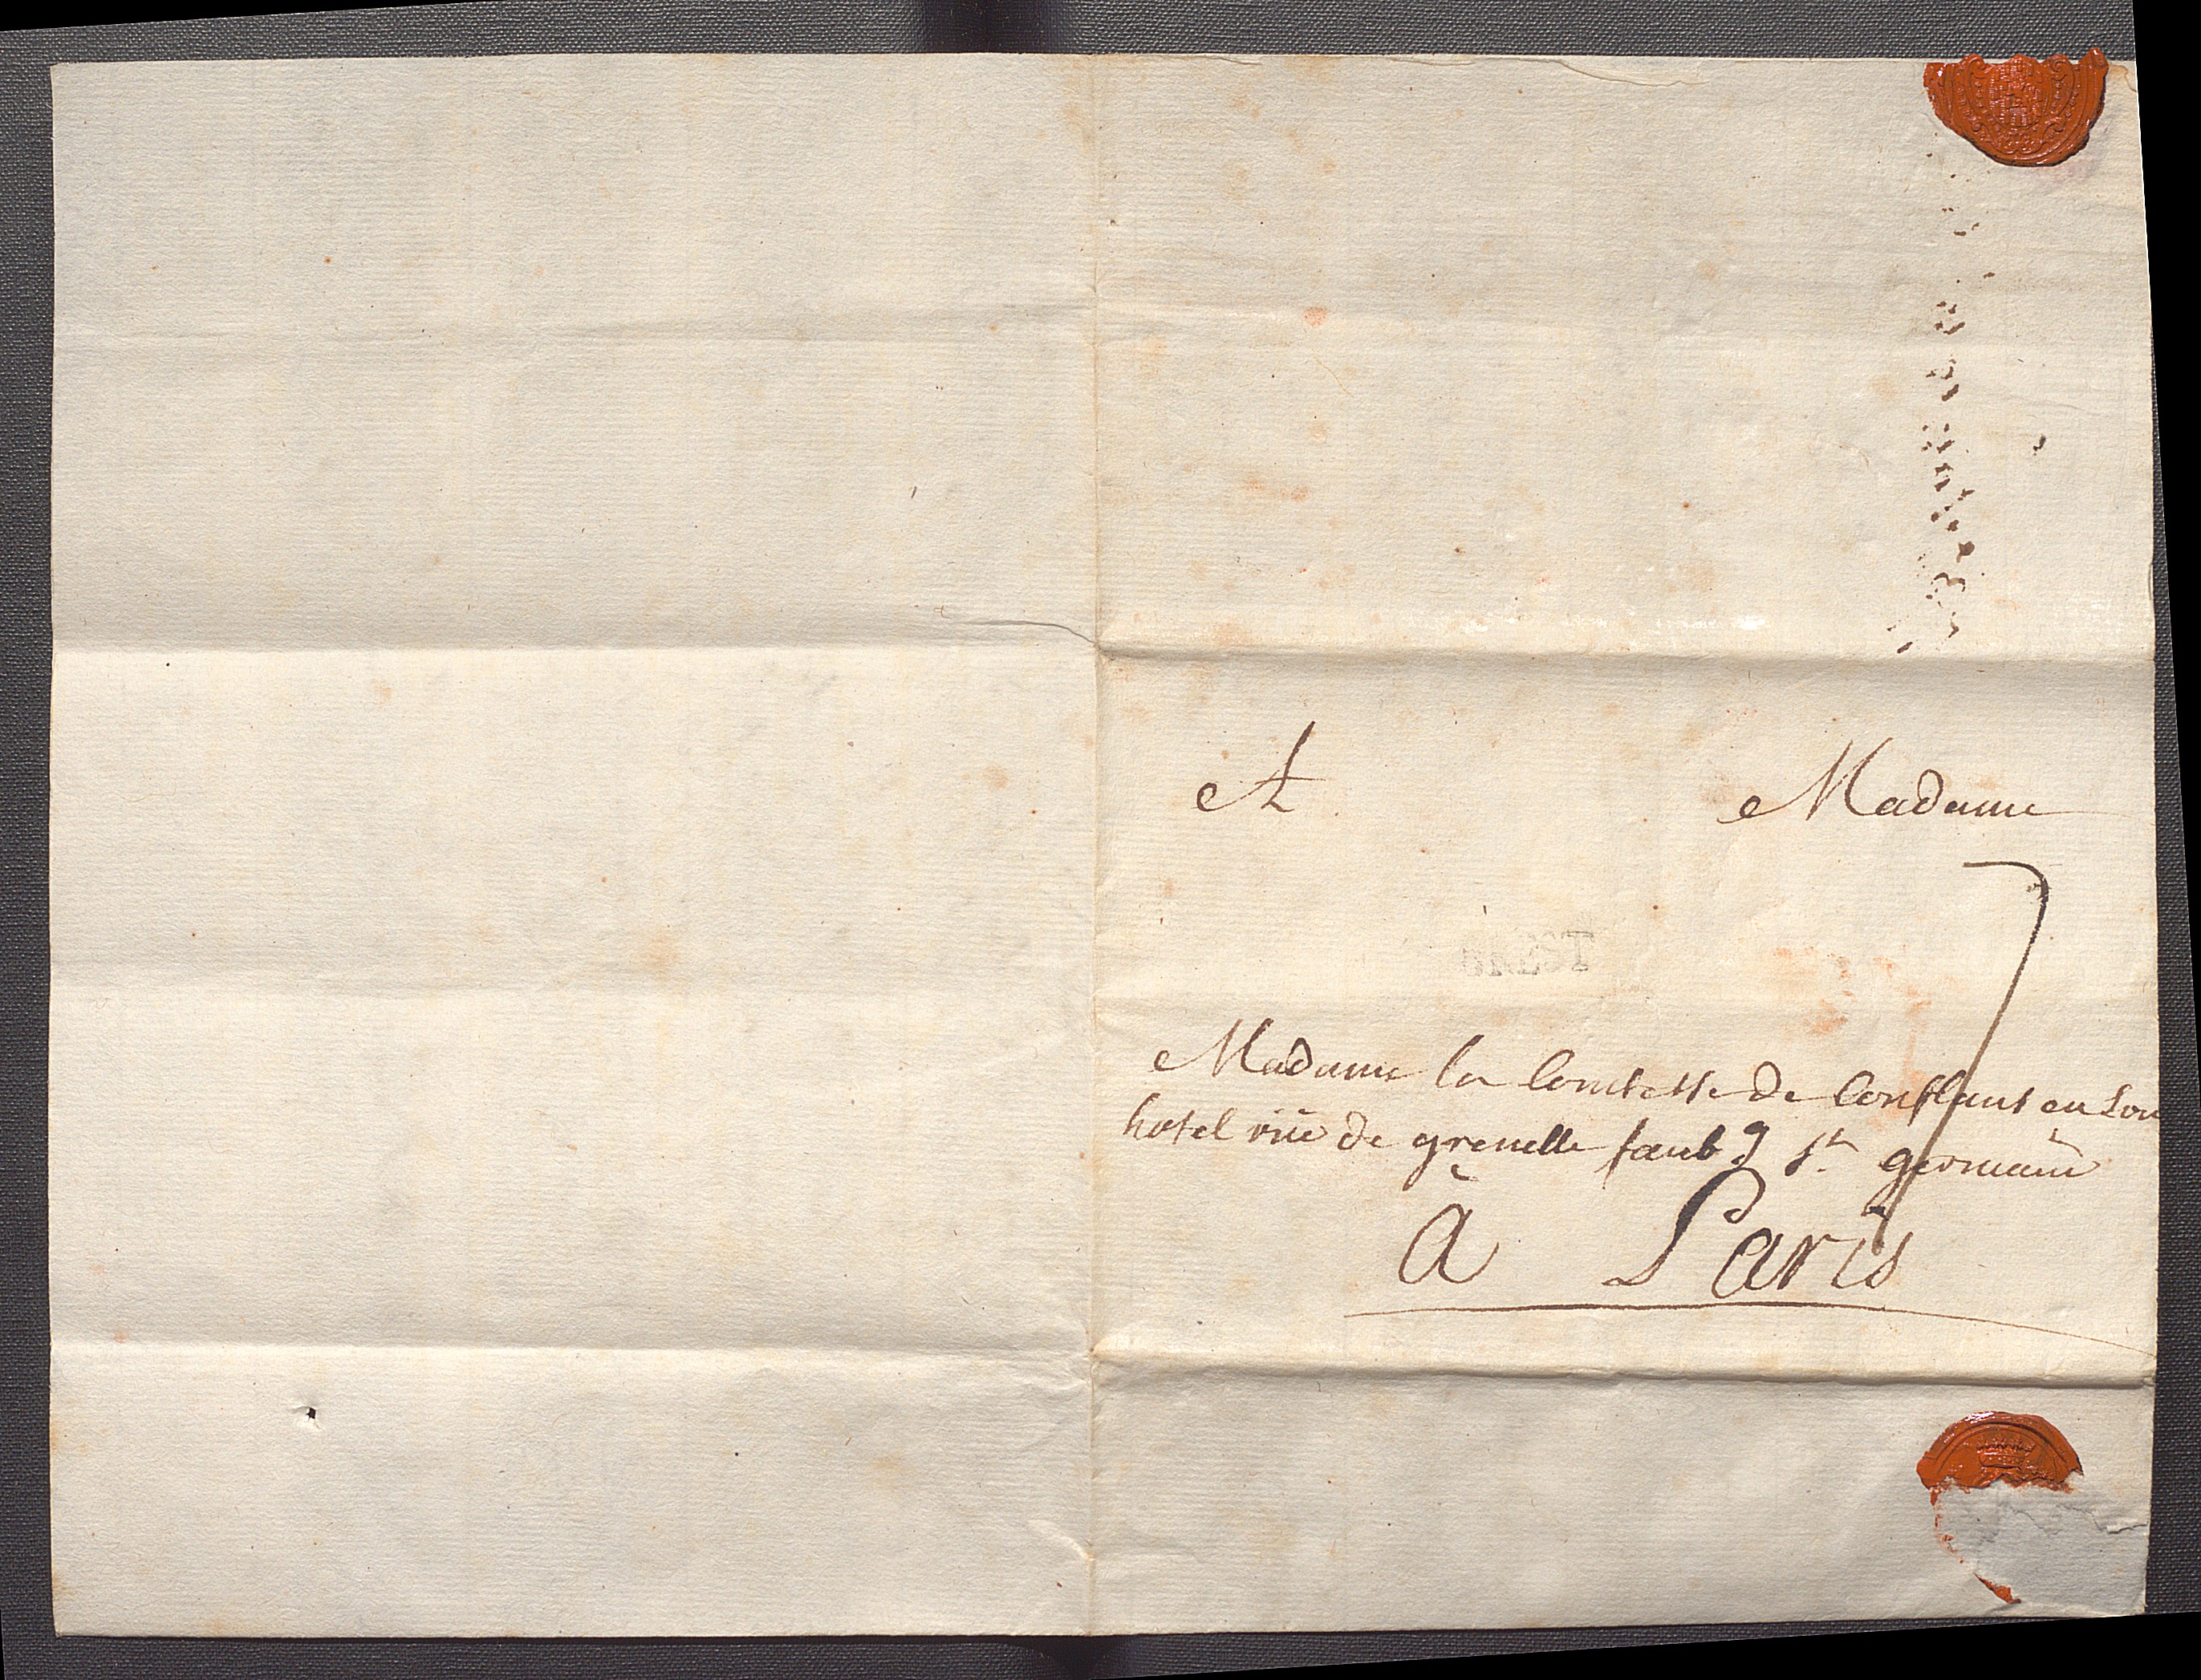 A Madame
7
Madame la Comtesse de Conflans en son
hotel rüe de grenelle faubg St germain
à Paris